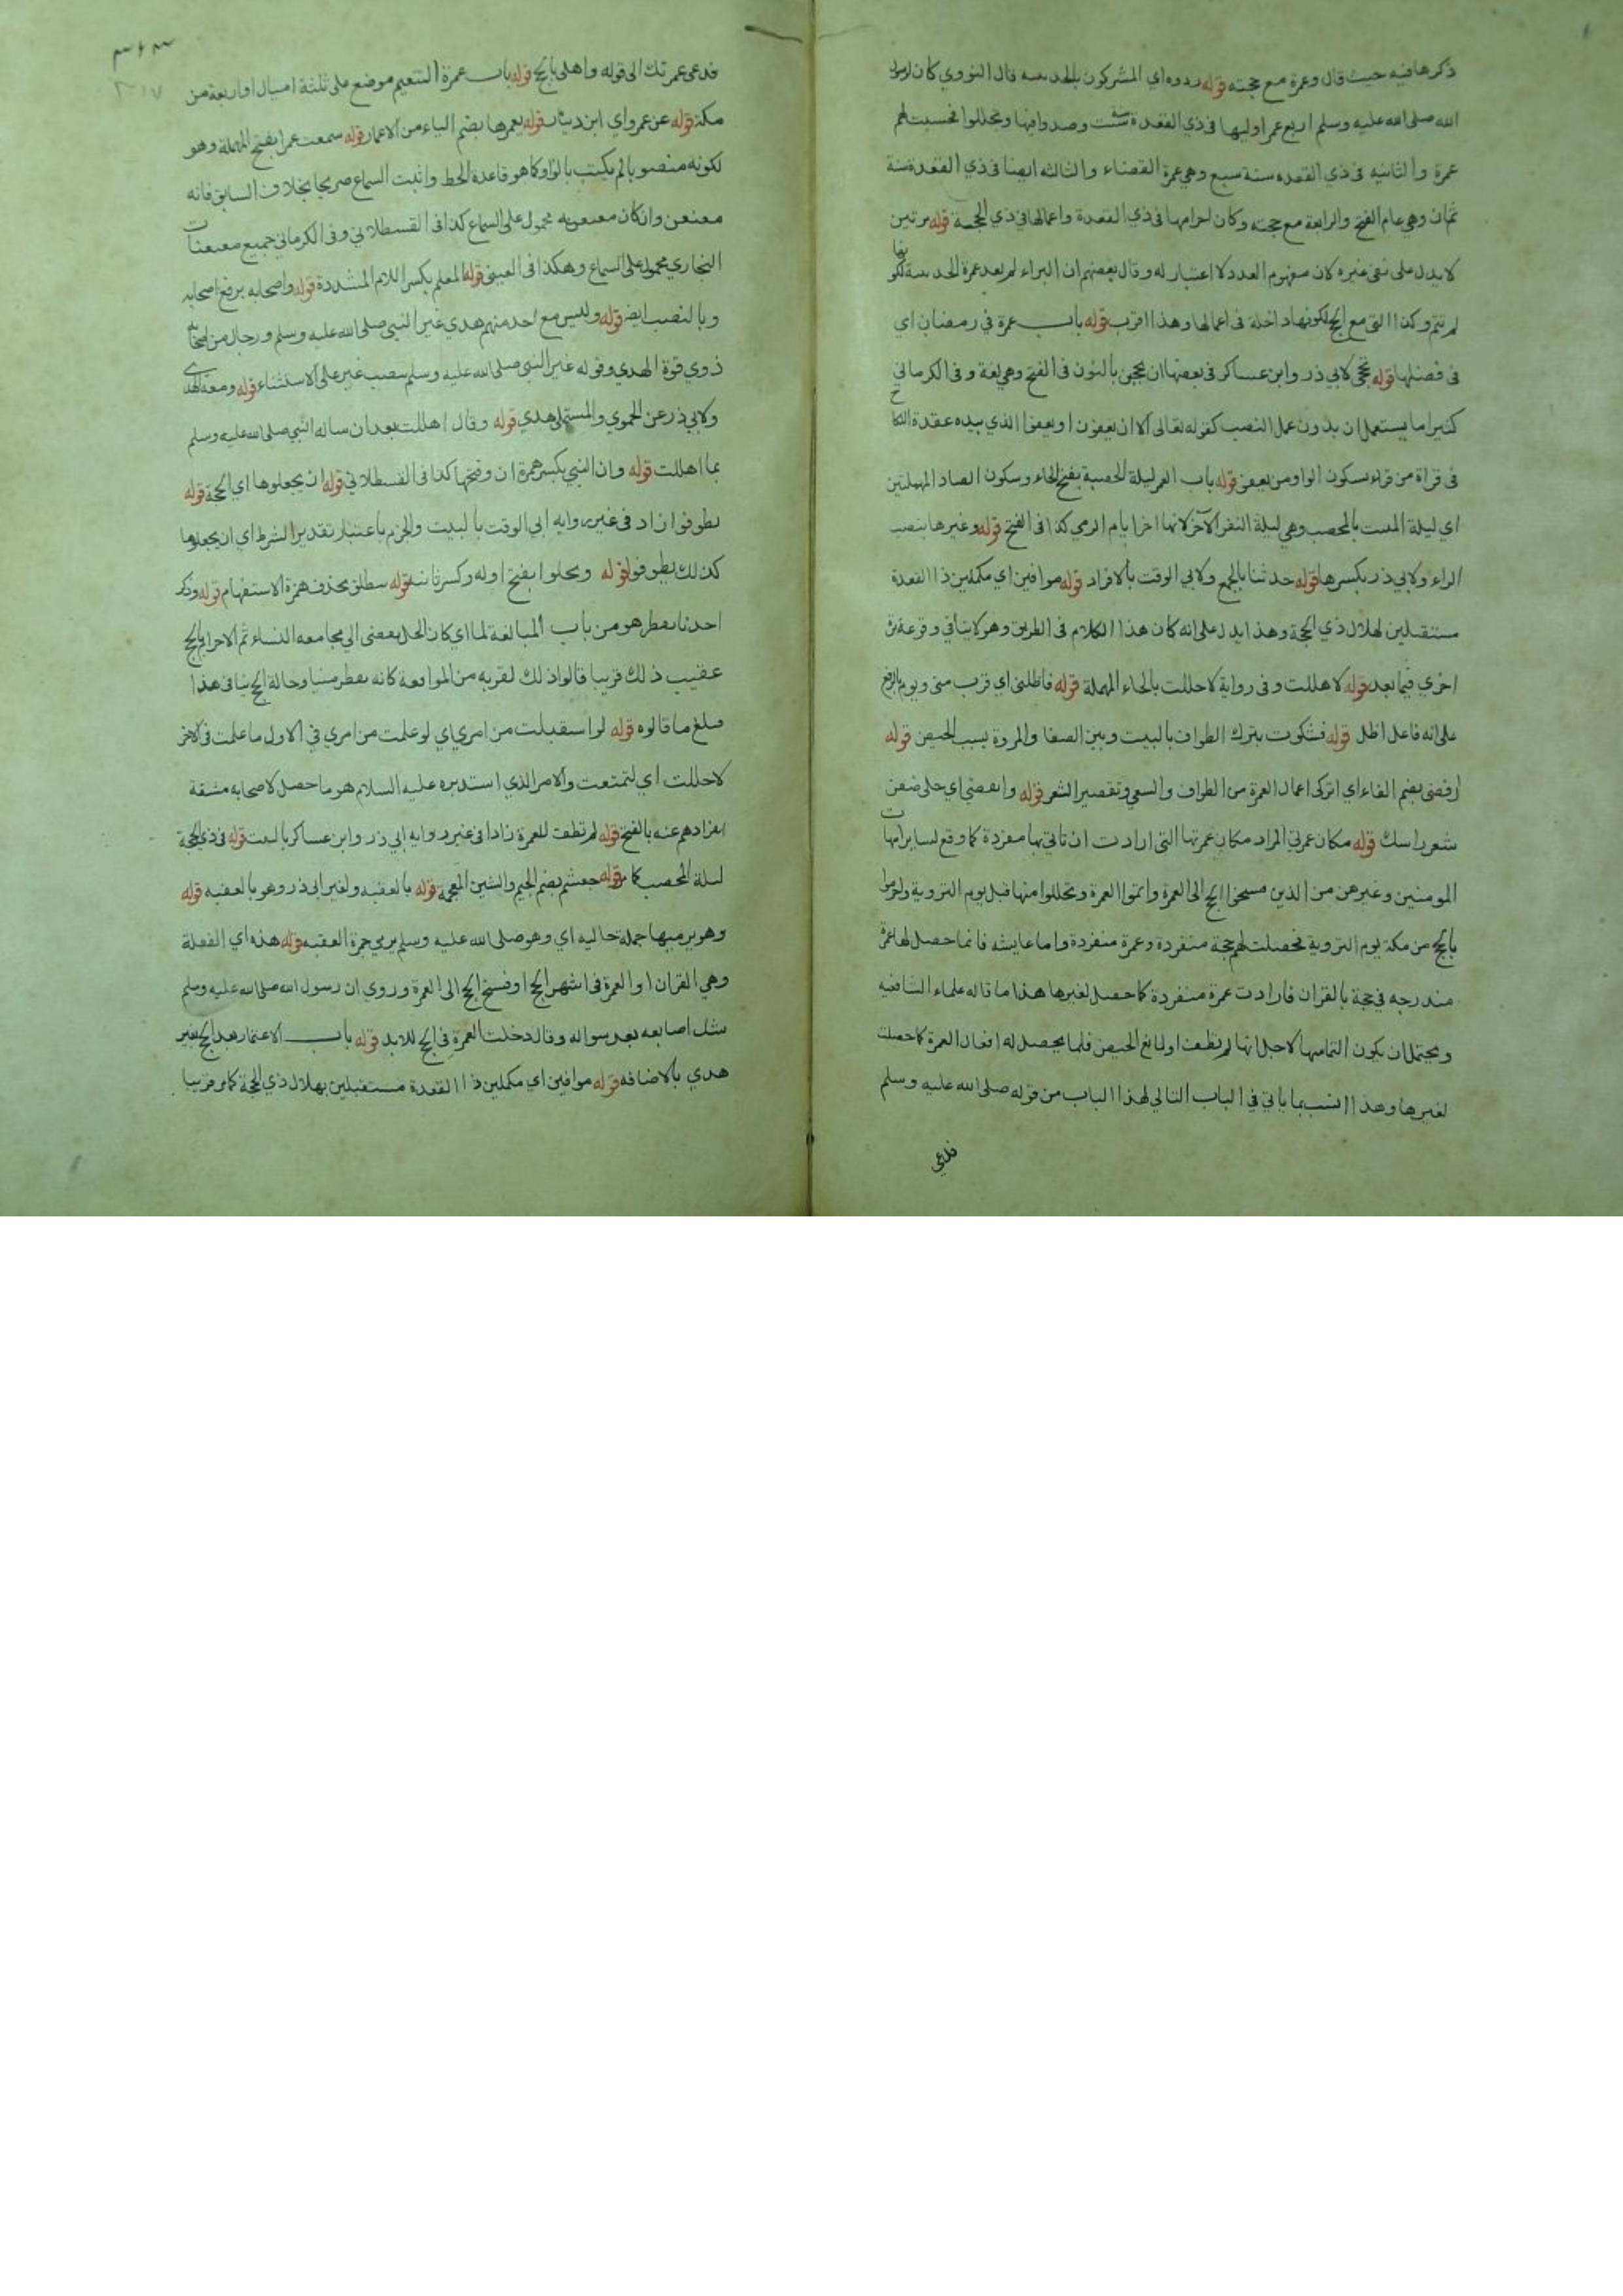 ذكرها فيه حيث قال وعمرة مع حجته قوله ردوه اي المشركون بالحديبيه قال النووي كان لرسول
الله صلى الله عليه وسلم اربع عمر اوليها في ذي القعدة سنة ست وصدوا فيها وتحللوا فحسبت لهم
عمرة والثانيه في ذي القعده سنة سبع وهي عمرة القضاء والثالثه ايضا في ذي القعدة سنة
ثمان وهي عام الفتح والرابعة مع حجته وكان احرامها في ذي القعدة واعمالها في ذي الحجة قوله مرتين
لا يدل على نفي غيره لان مفهوم العدد لا اعتبار له وقال بعضهم ان البراء لم يعد عمرة الحديبية لكونها
لم تتم وكذا التي مع الحج لكونها داخلة في اعمالها وهذا اقرب قوله باب عمرة في رمضان اي
في فضلها قوله تحجي لابي ذر وابن عساكر في بعضها ان تحجين بالنون في الفتح وهي لغة وفي الكرماني
كثيرا ما يستعمل ان بدون عمل النصب كقوله تعالى الا ان يعفون او يعفوا الذي بيده عقدة النكاح
في قراة من قراء بسكون الواو من يعفو قوله باب العمر ليلة الحصبة بفتح الحاء وسكون الصاد المهملتين
اي ليلة المبيت بالمحصب وهي ليلة النفر الآخر لانها اخر ايام الرمي كذا في الفتح قوله وغيرها بنصب
الراء ولابي ذر بكسرها قوله حدثنا بالجمع ولابي الوقت بالافراد قوله موافين اي مكملين ذا القعدة
مستقبلين لهلال ذي الحجة وهذا يدل على انه كان هذا الكلام في الطريق وهو لا ينافي وقوعه مرة
اخري فيما بعد قوله لاهللت وفي رواية لاحللت بالحاء المهملة قوله فاظلني اي قرب مني ويوم بالرفع
على انه فاعل اظل قوله فشكوت بترك الطواف بالبيت وبين الصفا والمروة بسبب الحيض قوله
ارفضي بضم الفاء اي اتركي اعمال العمرة من الطواف والسعي وتقصير الشعر قوله وانقضي اي حلي ضفر
شعر راسك قوله مكان عمرتي المراد مكان عمرتها التي ارادت ان تاتي بها مفردة كما وقع لساير امهات
المومنين وغيرهن من الذين فسخوا الحج الى العمرة واتموا العمرة وتحللوا منها قبل يوم التروية واحرموا
بالحج من مكة يوم التروية فحصلت لهم حجة منفردة وعمرة منفردة واما عايشه فانما حصل لها عمرة
مندرجه في حجة بالقران فارادت عمرة منفردة كما حصل لغيرها هذا ما قاله علماء الشافعيه
ويحتمل ان يكون التمامها لاجل انها لم تطف اولا مانع الحيض فلما يحصل له افعال العمرة كما حصلت
لغيرها وهذا انسب بما ياتي في الباب التالي لهذا الباب من قوله صلى الله عليه وسلم
فدعي
فدعي عمرتك الى قوله واهلي بالحج قوله باب عمرة التنعيم موضع على ثلثة اميال او اربعة من
مكة قوله عن عمرو اي ابن دينار قوله يعمرها بضم الياء من الاعمار قوله سمعت عمرا بفتح المهملة وهو
لكونه منصوبا لم يكتب بالواو كما هو قاعدة الخط واثبت السماع صريحا بخلاف السابق فانه
معنعن وان كان معنعنه محمول على السماع كذا في القسطلاني وفي الكرماني جميع معنعنات
البخاري محمول على السماع وهكذا في العيني قوله المعلم بكسر اللام المشددة قوله واصحابه برفع اصحابه
وبالنصب ايضا قوله وليس مع احد منهم هدي غير النبي صلى الله عليه وسلم ورجال من اصحابه
ذوي قوة الهدي وقوله غير النبي صلى الله عليه وسلم بنصب غير على الاستثناء قوله ومعه الهدي
ولابي ذر عن الحموي والمستملي هدي قوله وقال اهللت بعد ان ساله النبي صلى الله عليه وسلم
بما اهللت قوله وان النبي بكسر همزة ان وفتحها كذا في القسطلاني قوله ان يجعلوها اي الحجة قوله
يطوفوا زاد في غير رواية ابي الوقت بالبيت والجزم باعتبار تقدير الشرط اي ان يجعلوها
كذلك يطوفوا قوله ويحلوا بفتح اوله وكسر ثانيه قوله ننطلق بحذف همزة الاستفهام قوله وذكر
احدنا يقطر هو من باب المبالغة لما اي كان الحل يفضي الى مجامعه النساء ثم الاحرام بالحج
عقيب ذلك قريبا قالوا ذلك لقربه من المواقعة كانه يقطر منيا وحالة الحج ينافي هذا
فبلغ ما قالوه قوله لو استقبلت من امري اي لو علمت من امري في الاول ما علمت في الآخر
لاحللت اي لتمتعت والامر الذي استدبره عليه السلام هو ما حصل لاصحابه مشقة
انفرادهم عنه بالفسخ قوله لم تطف للعمرة زاد في غير رواية ابي ذر وابن عساكر بالبيت قوله في ذي الحجة
ليلة المحصب كما مر قوله جعشم بضم الجيم والشين المعجمة قوله بالعقبه ولغير ابي ذر وهو بالعقبه قوله
وهو يرميها جملة حاليه اي وهو صلى الله عليه وسلم يرمي جمرة العقبه قوله هذه اي الفعلة
وهي القران او العمرة في اشهر الحج او فسخ الحج الى العمرة وروي ان رسول الله صلى الله عليه وسلم
شبك اصابعه بعد سواله وقال دخلت العمرة في الحج للابد قوله باب الاعتمار بعد الحج بغير
هدي بالاضافه قوله موافين اي مكملين ذا القعدة مستقبلين بهلال ذي الحجة كما مر قريبا